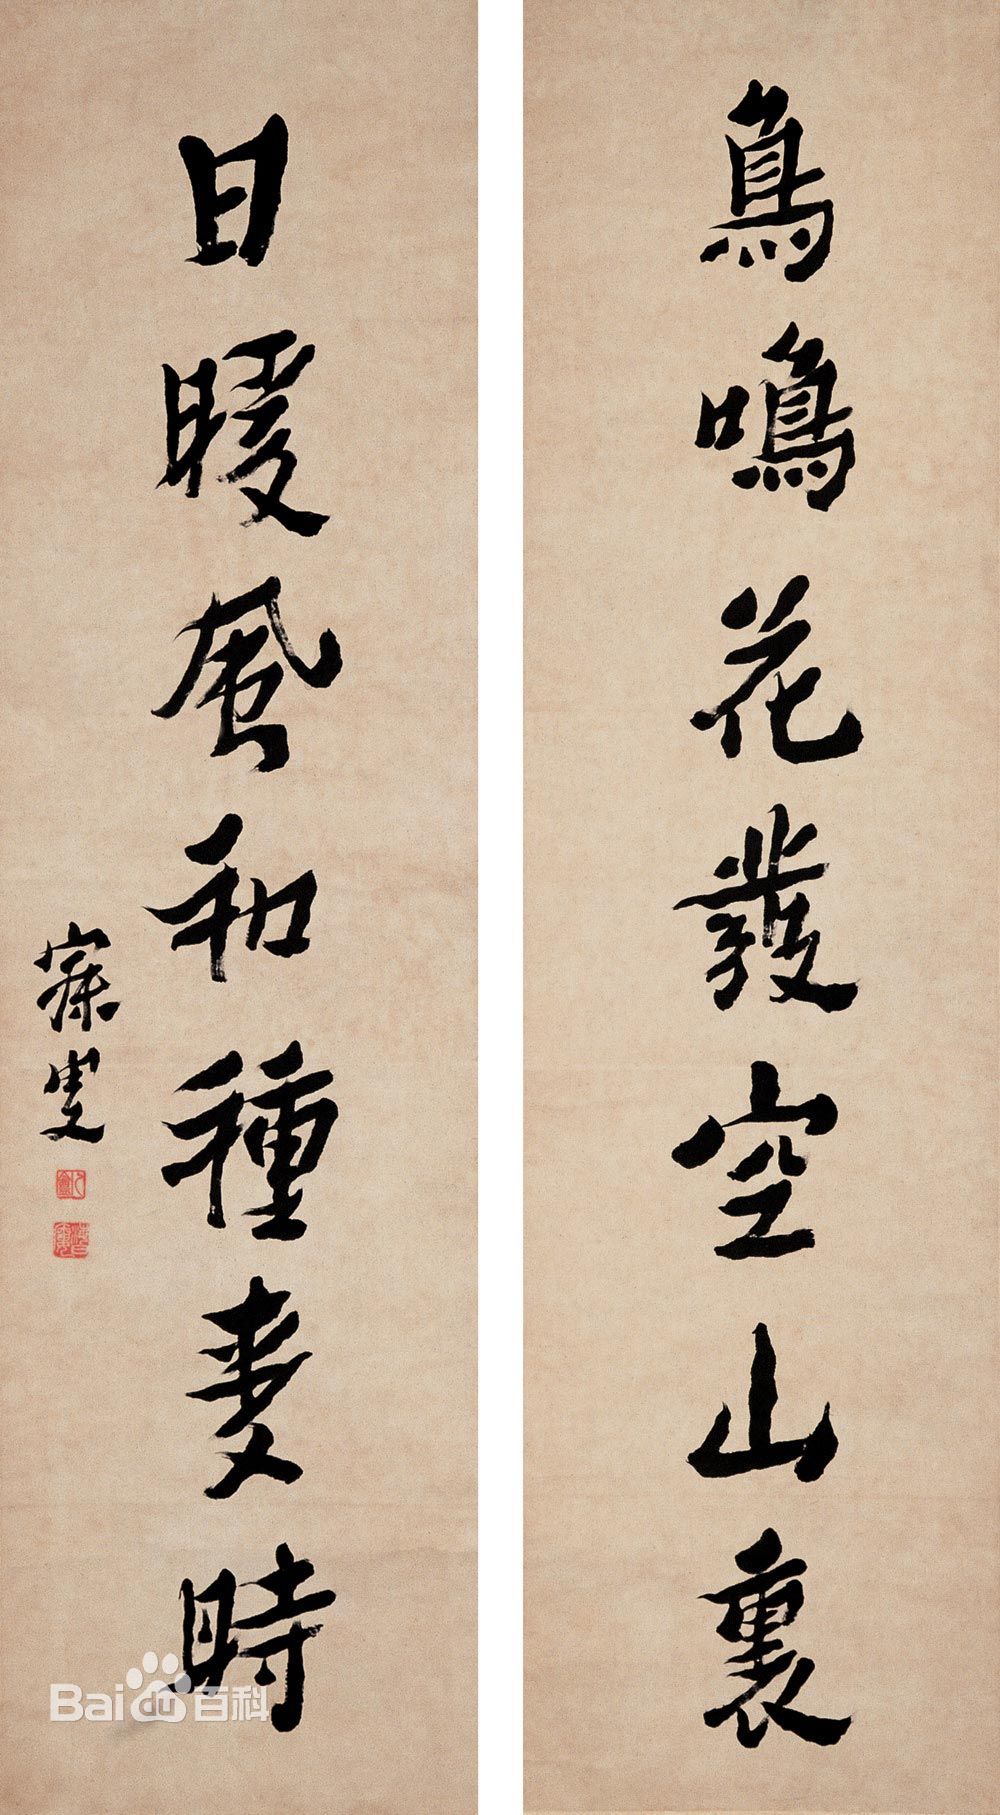 鳥鳴花發空山裏
日暖風和種麥時
寐叟
Baidu百科